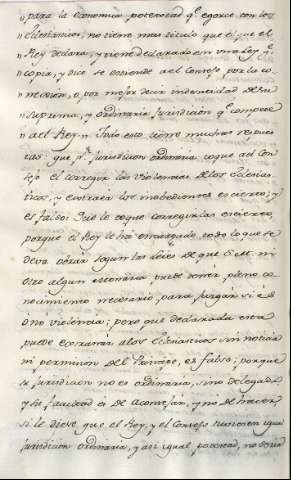 " para la economica potestad qe egerce con los
" Eclesiasticos, no tiene mas titulo que el que el
" Rey declara, y tiene declarado en una Ley qe
" copia, y dice se estiende a el Consejo por la co-
" nexion, o por mejor decir indentidad de la
" suprema, y ordinaria Jurisdicion qe compete
" a el Rey." Todo esto tiene muchas respues-
tas: que pr jurisdicion ordinaria toque a el Con-
sejo el corregir las violencias de los Eclesias-
ticos, y extrañar los inobedientes es cierto; y
es falso: que le toque corregirlas es cierto,
porque el Rey le ha encargado todo lo que se
deva obrar segun las leies de que
otro algun escrivano puede tener pleno co-
nocimiento necesario, para juzgar si es
o no violencia; pero que declarada esta
puede extrañar a los Eclesiasticos sin noticia
ni permision del Principe, es falso; porque
la jurisdicion no es ordinaria, sino delegada
y la facultad es de aconsejar, y no de hacer
si le diese que el Rey, y el Consejo tuviesen igual
jurisdicion ordinaria, y asi igual potestad, no seria